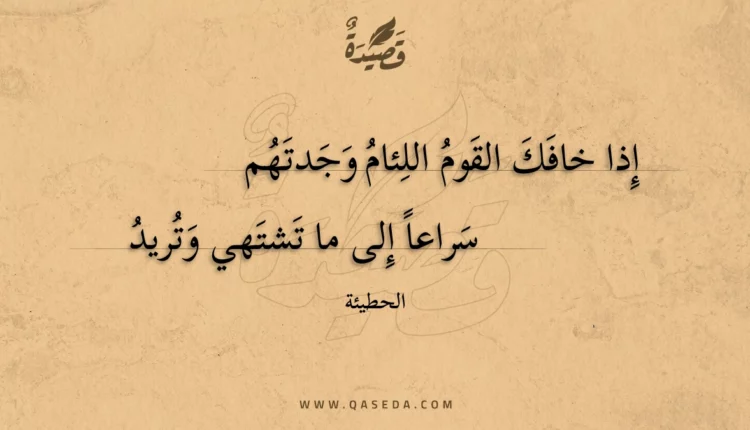 قَصِيدَةٌ
إِذا خافَكَ القَومُ اللِئامُ وَجَدتَهُم
سَراعاً إِلى ما تَشتَهي وَتُريدُ
الحطيئة
WWW.QASEDA.COM